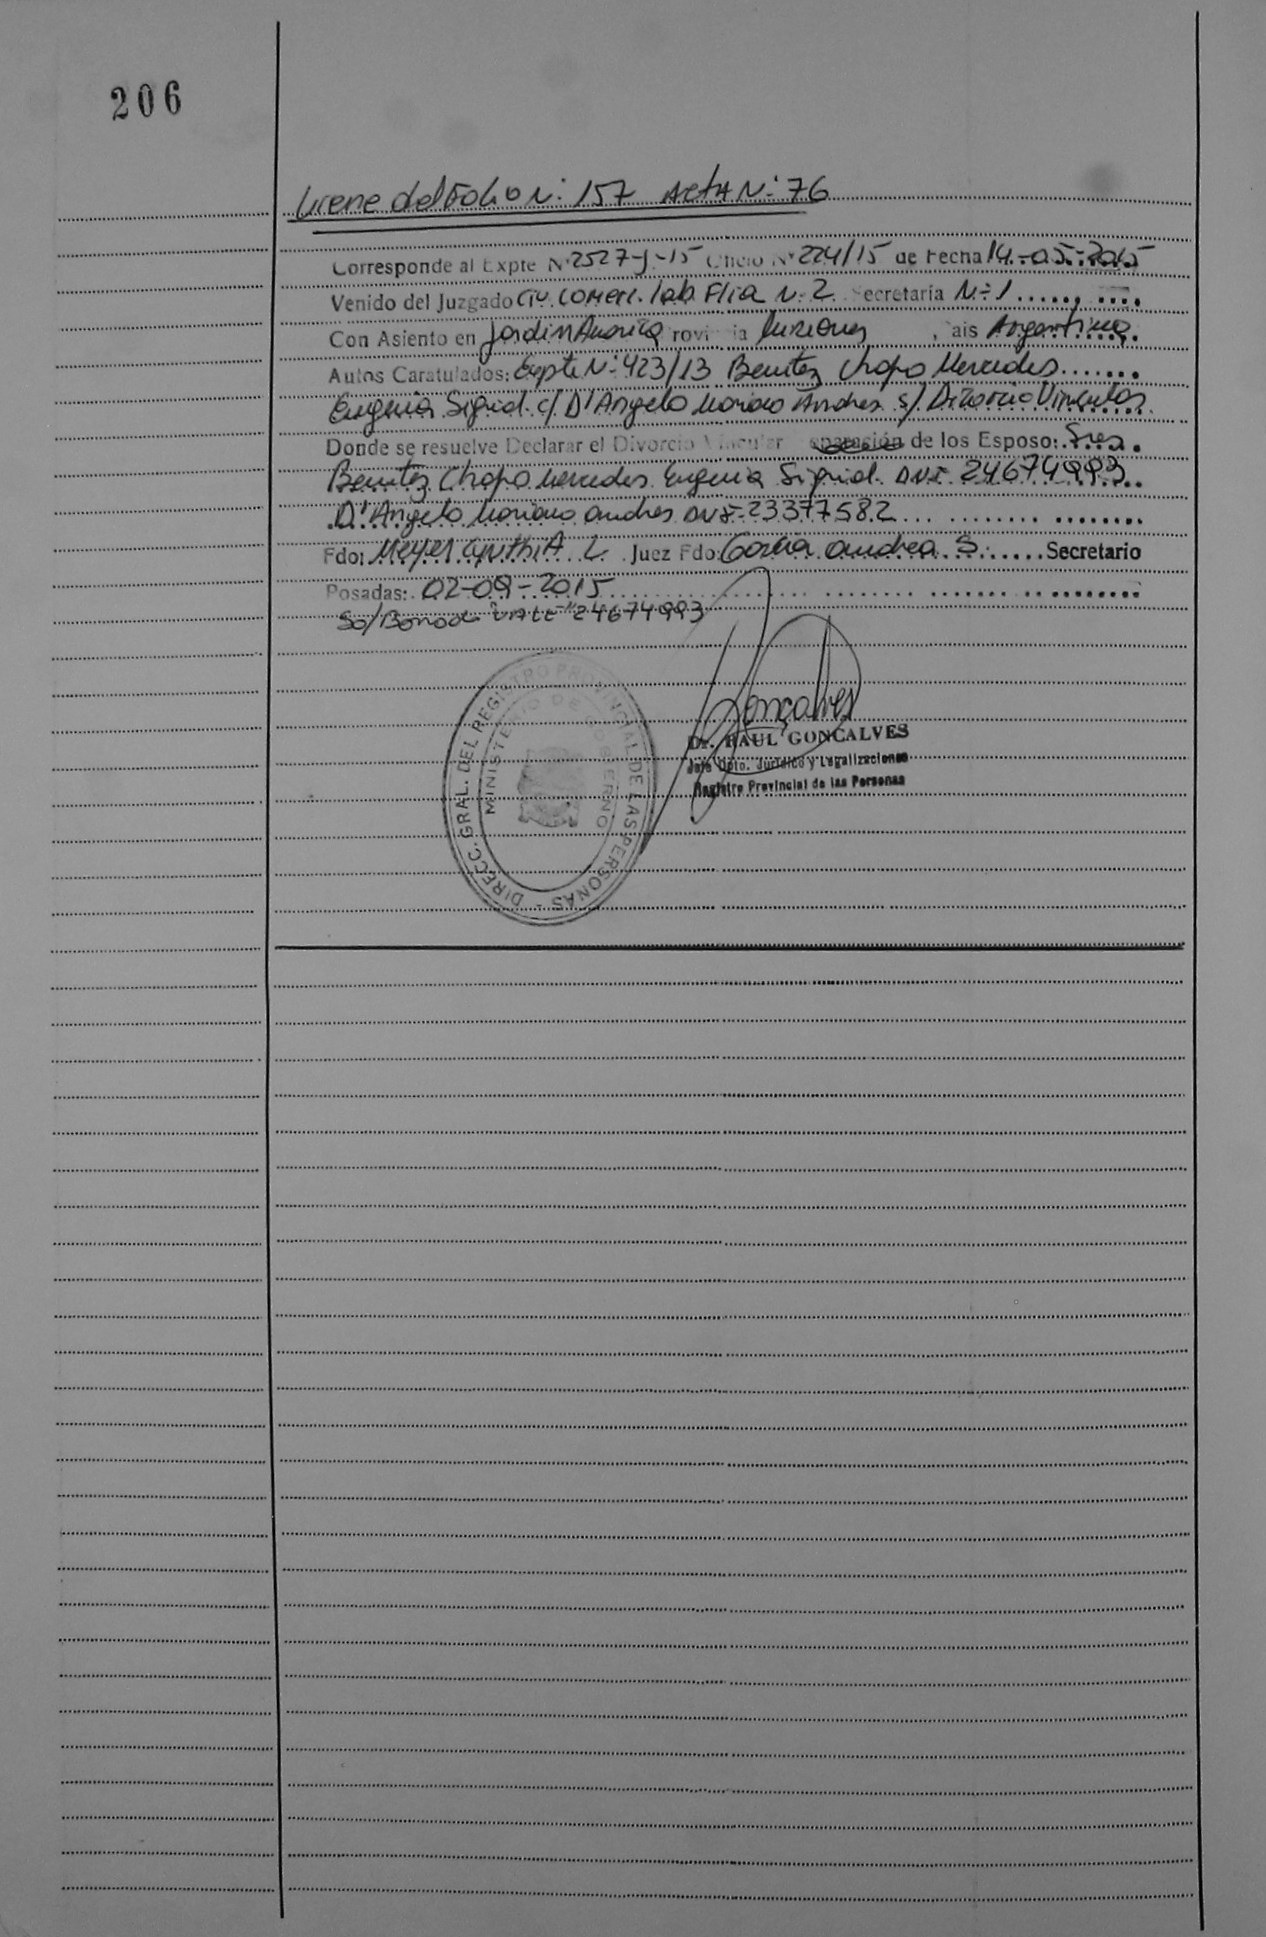 206
Viene del Folio N: 157 Acta N: 76
Corresponde al Expte Nº 2527-J-15 Oficio Nº 224/15 de Fecha 14.-05.-2015
Venido del Juzgado Civ. Comerc. Lab. Flia N: 2 Secretaria N: 1
Con Asiento en Jardin America rovi ia Misiones, ais Argentina.
Autos Caratulados: Expte N: 423/13 Benitez Chapo Mercedes
Eugenia Sigrid c/ D'Angelo Mariano Andres s/ Divorcio Vincular
Donde se resuelve Declarar el Divorcio Vincular eparación de los Esposo: Sres.
Benitez Chapo Mercedes Eugenia Sigrid. DNI: 24674993.
D'Angelo Mariano Andres DNI: 23377582
Fdo: Meyer Cynthia L. Juez Fdo: Garcia Andrea S. Secretario
Posadas: 02-09-2015
So/Borrado Vale "24674993
DIRECC. GRAL. DEL REGISTRO PROVINCIAL DE LAS PERSONAS -
MINISTERIO DE GOBIERNO
Gonçalves
Dr. RAUL GONCALVES
Jefe Dpto. Jurídico y Legalizaciones
Registro Provincial de las Personas